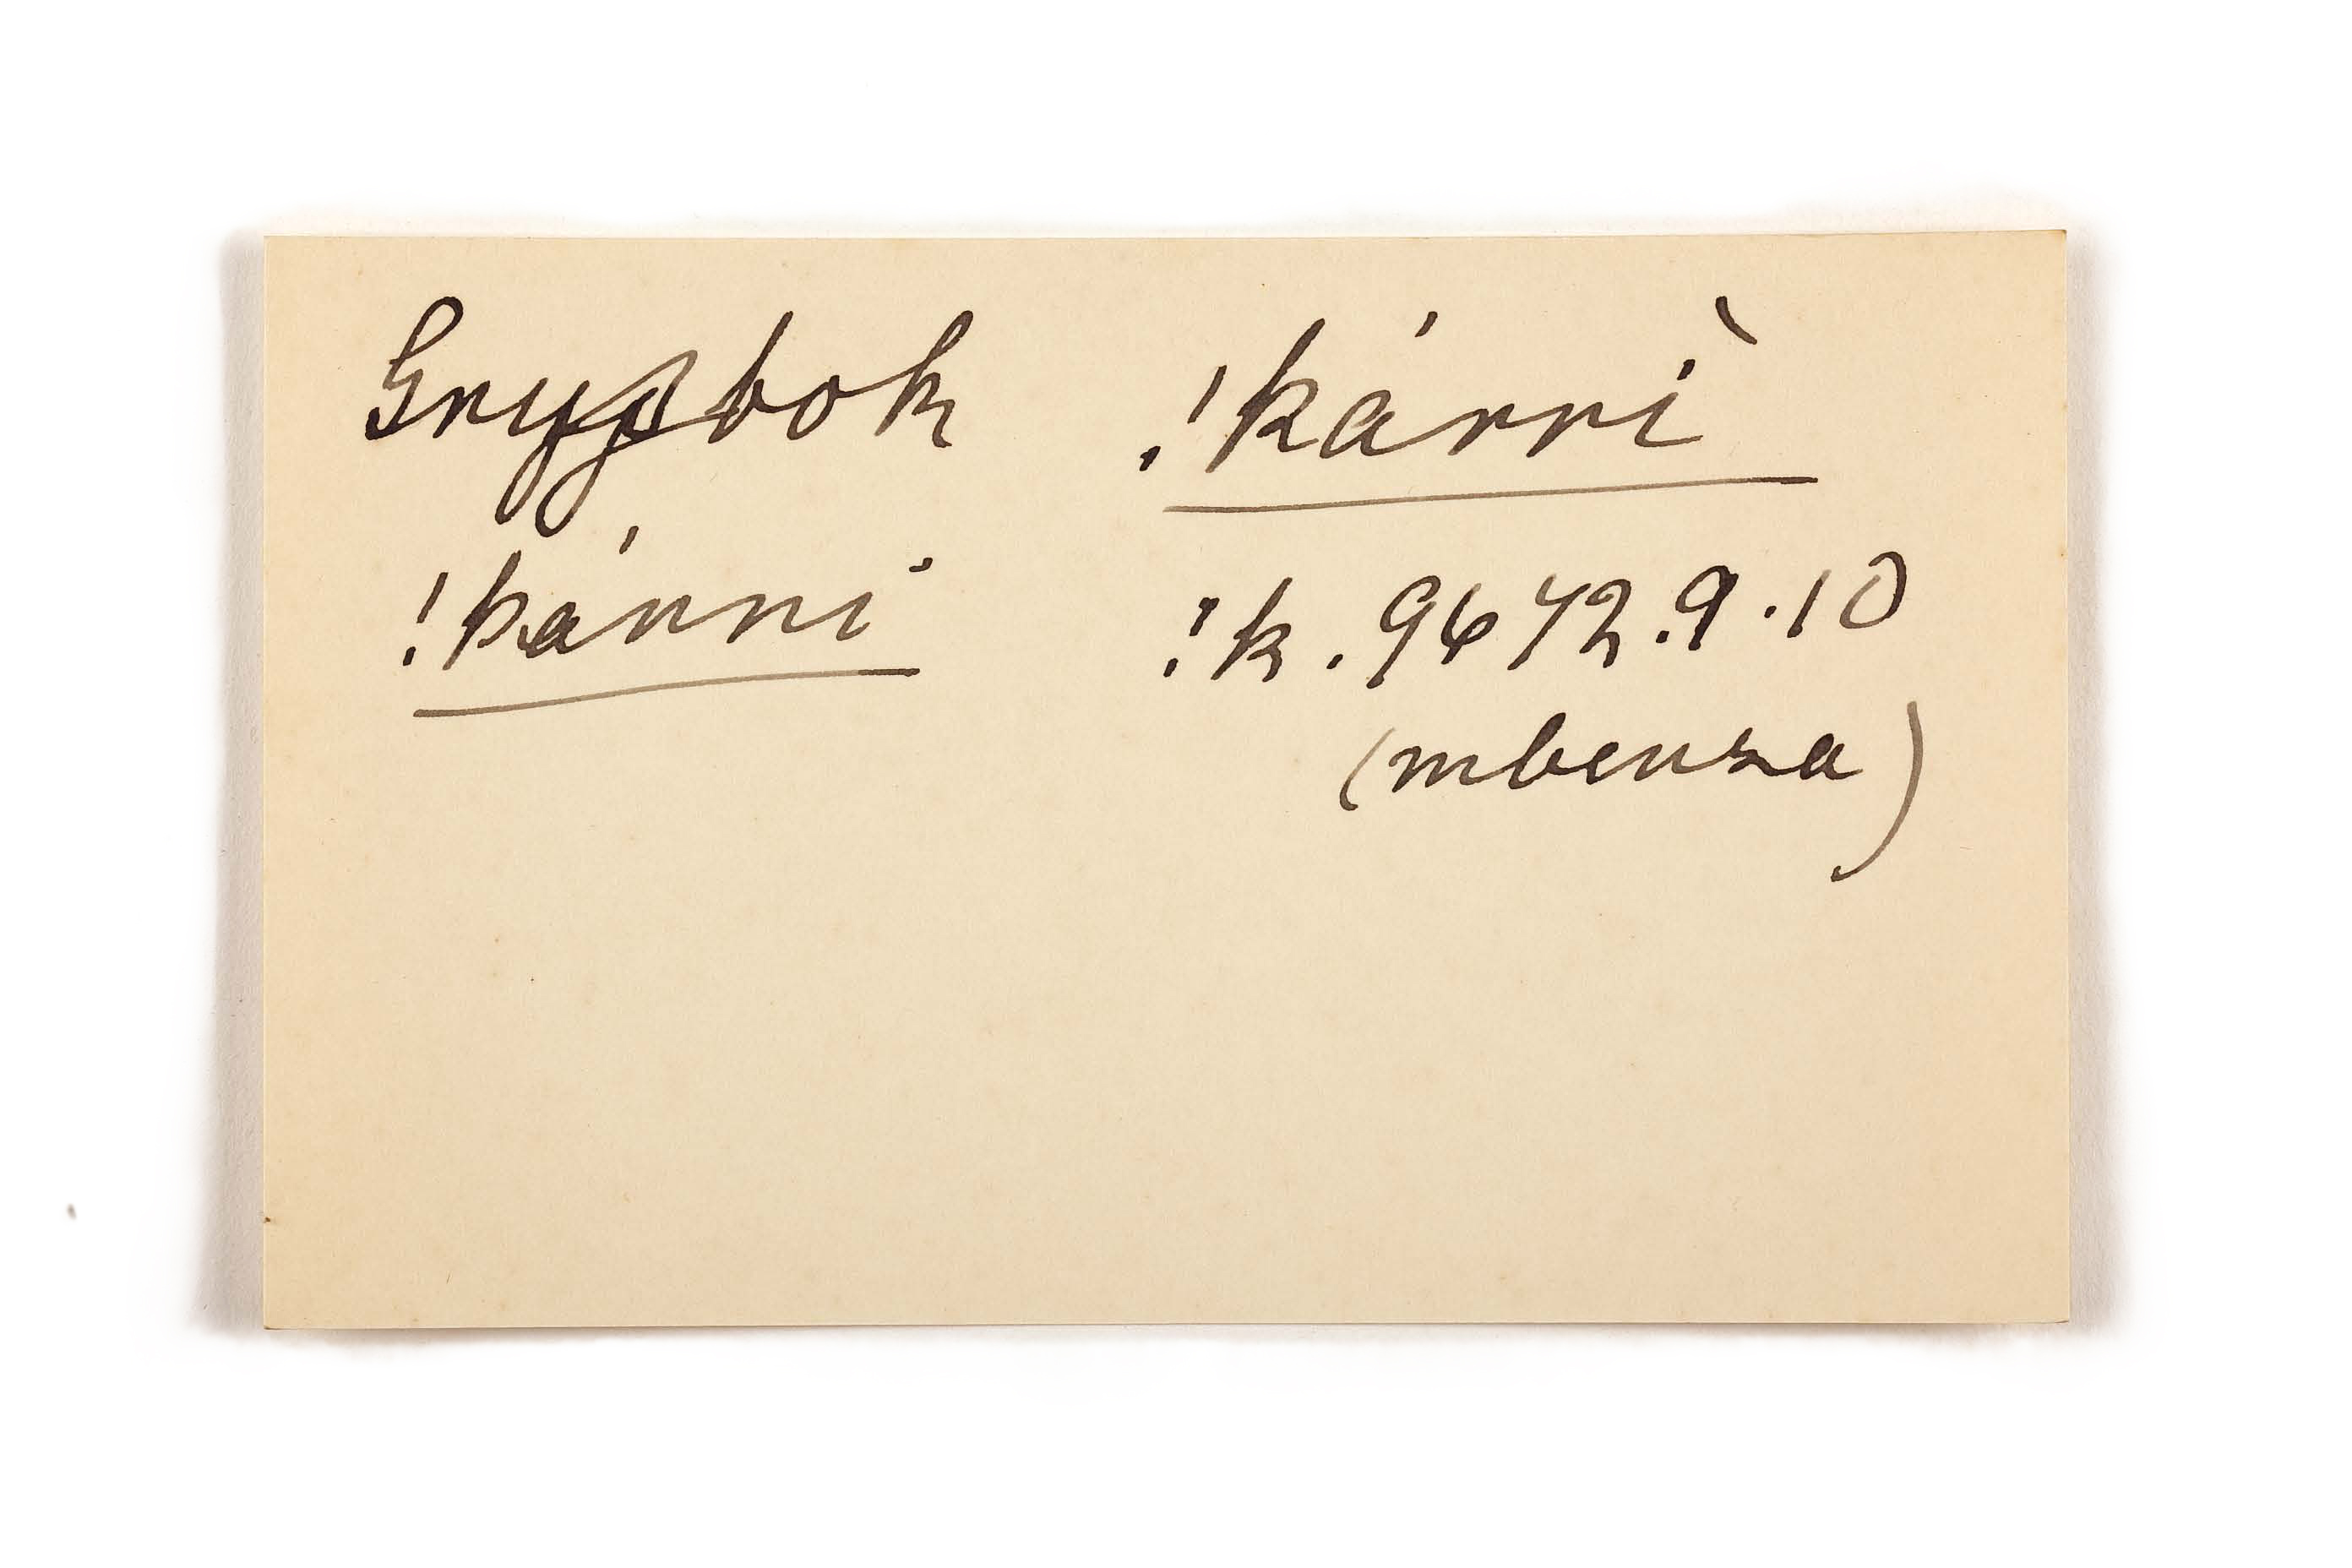 Grysbok !kárrì
!kánni !k. 9672.9.10
(mbenza)